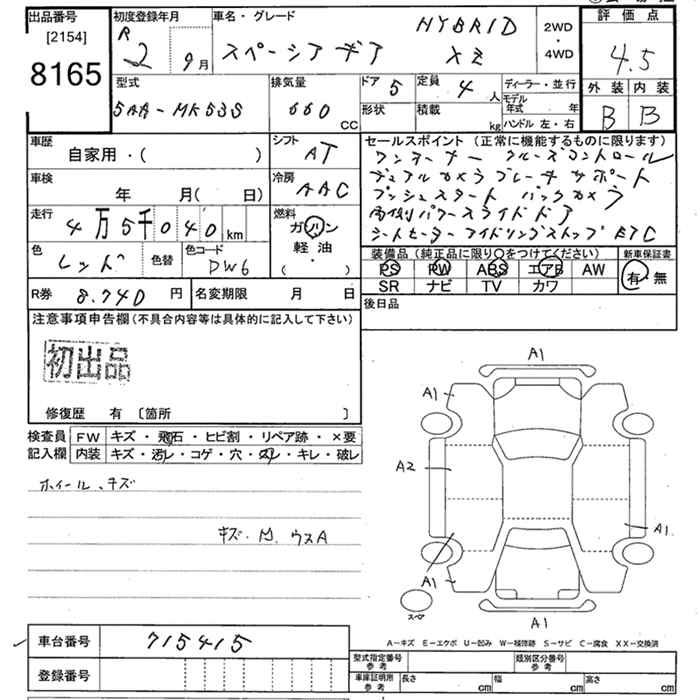 出品番号
[2154]
8165
初度登録年月
R 2 9月
車名・グレード
HYBRID
スペーシア ギア XZ
2WD
・
4WD
評価点
4.5
外装 内装
B B
型式
5AA-MK53S
排気量
660 cc
ドア 5
定員 4 人
形状
積載 kg
ディーラー・並行
モデル年式 年
ハンドル 左・右
車歴
自家用・( )
シフト AT
車検
年 月( 日)
冷房 AAC
走行
4万5千040 km
燃料
ガソリン
軽油
( ・ )
色 レッド
色替
色コード DW6
R券 8.740 円
名変期限 月 日
セールスポイント(正常に機能するものに限ります)
ワンオーナー クルーズコントロール
デュアルカメラブレーキサポート
プッシュスタート バックカメラ
両側パワースライドドア
シートヒーター アイドリングストップ ETC
装備品(純正品に限り○をつけてください)
PS PW ABS エアB AW
SR ナビ TV カワ
新車保証書
有・無
後日品
注意事項申告欄(不具合内容等は具体的に記入して下さい)
初出品
修復歴 有 〔箇所 〕
検査員記入欄
FW キズ・飛石・ヒビ割・リペア跡・×要
内装 キズ・汚レ・コゲ・穴・スレ・キレ・破レ
ホイール、キズ
キズ・凹、ウスA
A1
A1
A1
A2
A1
A1
A1
スペア
車台番号 715415
登録番号
A-キズ E-エクボ U-凹み W-補修跡 S-サビ C-腐食 XX-交換済
型式指定番号 参考
類別区分番号 参考
車庫証明用 参考
長さ cm 幅 cm 高さ cm